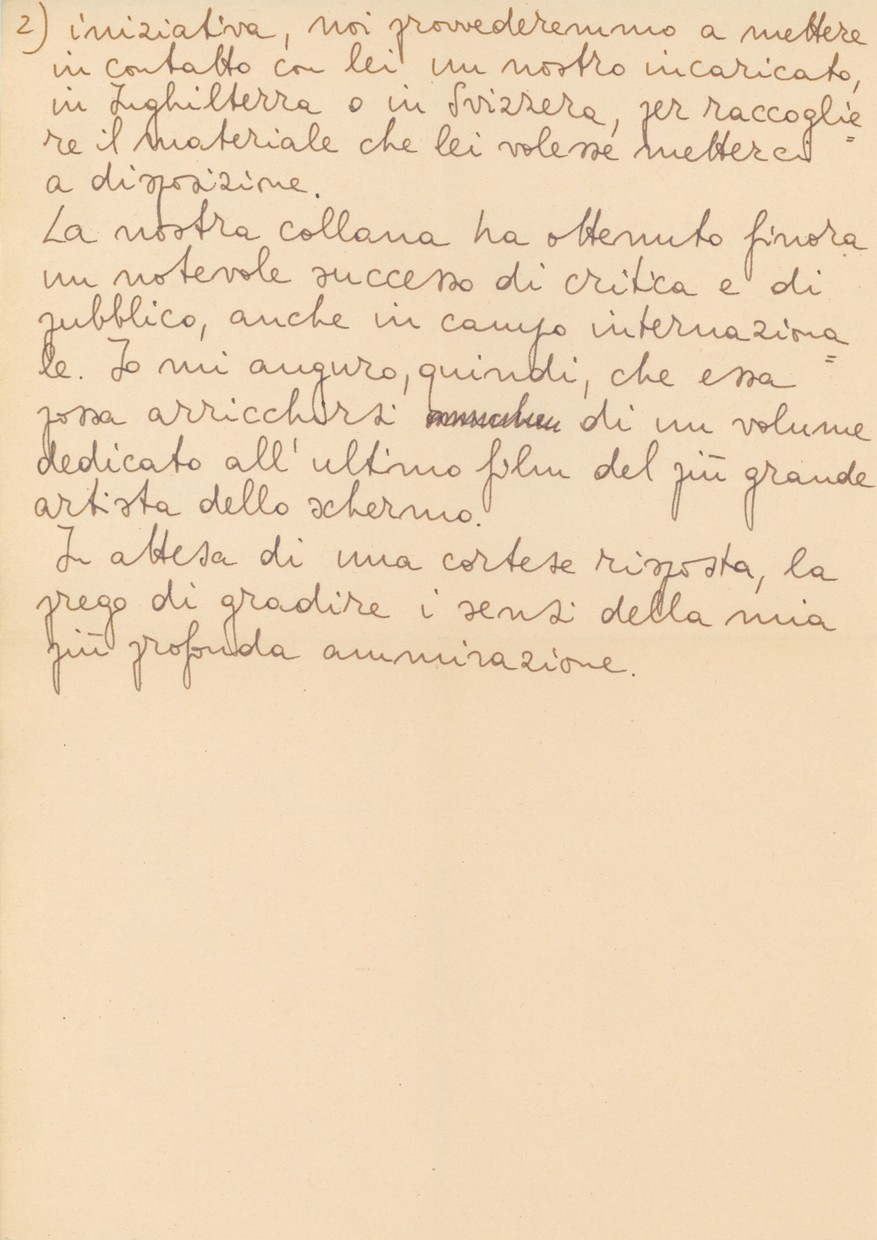 2) iniziativa, noi provvederemmo a mettere
in contatto con lei un nostro incaricato,
in Inghilterra o in Svizzera, per raccoglie=
re il materiale che lei volesse metterci
a disposizione.
La nostra collana ha ottenuto finora
un notevole successo di critica e di
pubblico, anche in campo internaziona=
le. Io mi auguro, quindi, che essa
possa arricchirsi di un volume
dedicato all'ultimo film del più grande
artista dello schermo.
In attesa di una cortese risposta, la
prego di gradire i sensi della mia
più profonda ammirazione.